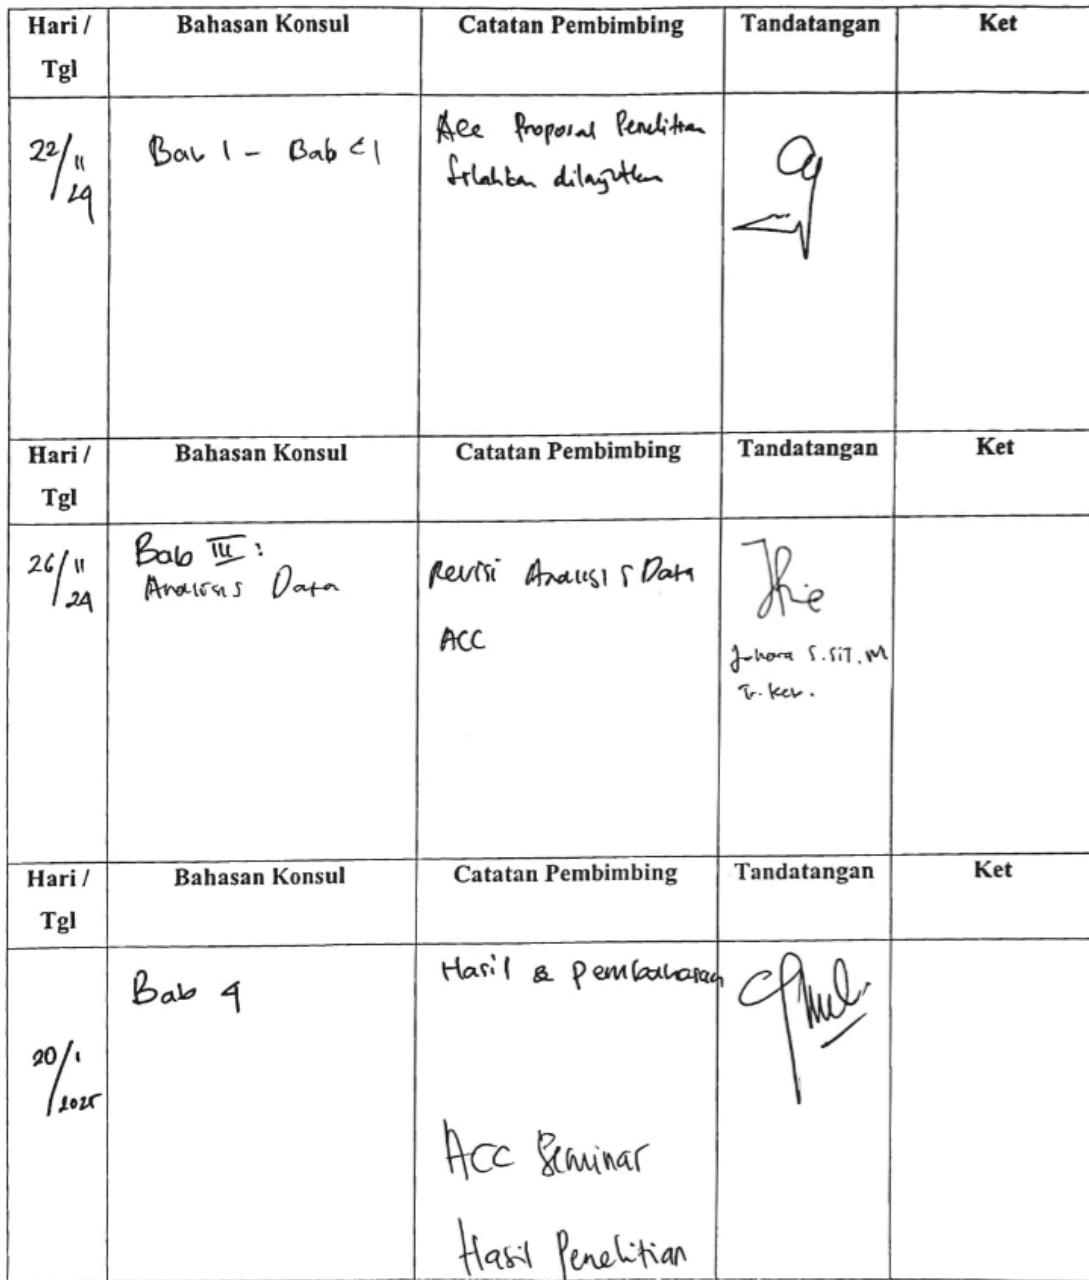 Hari / Bahasan Konsul Catatan Pembimbing Tandatangan Ket
Tgl
22/11/24 Bab 1 - Bab Acc Proposal Penelitian
Silahkan dilanjutkan
Hari / Bahasan Konsul Catatan Pembimbing Tandatangan Ket
Tgl
26/11/24 Bab III : Revisi Analisis Data
Analisis Data
ACC
S.SiT. M
Tr. Keb.
Hari / Bahasan Konsul Catatan Pembimbing Tandatangan Ket
Tgl
Bab 4 Hasil & Pembahasan
20/1/2025
ACC Seminar
Hasil Penelitian